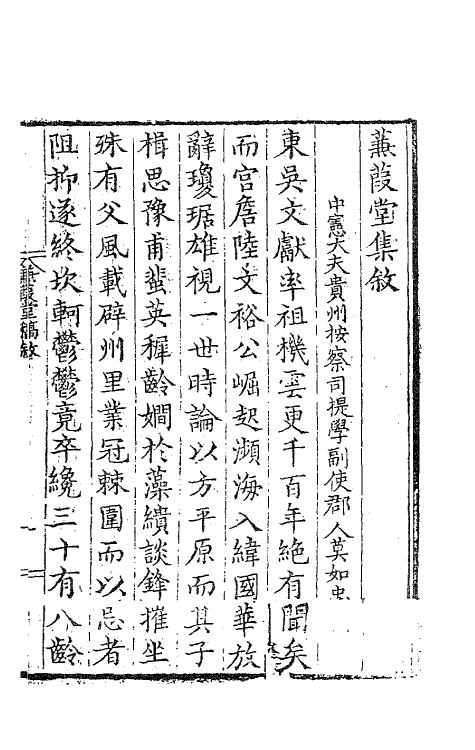 蒹葭堂集敘
中憲大夫貴州按察司提學副使郡人莫如忠
東吳文獻率祖機雲更千百年絕有聞矣
而宮詹陸文裕公崛起瀕海入緯國華放
辭瓊琚雄視一世時論以方平原而其子
楫思豫甫蜚英穉齡嫺於藻繢談鋒摧坐
殊有父風載辟州里業冠棘圍而以忌者
阻抑遂終坎軻鬱鬱竟卒纔三十有八齡
蒹葭堂稿敘